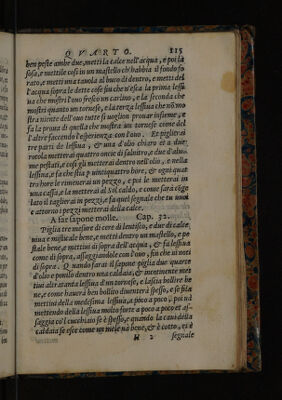 QVARTO. 115
ben peste ambe due, metti la calce nell'acqua, e poi la
sosa, e mettile cosi in un mastello ch'habbia il fondo fo
rato, e metti una tauola al buco di dentro, e metti del
l'acqua sopra le dette cose sin che n'esca la prima lessi
ua che mostri l'ouo fresco un carlino, e la seconda che
mostri quanto un tornese, e la terza lessiua che nõ mo
stra niente dell'ouo tutte si uoglion prouar insieme, e
fa la proua di quella che mostra un tornese come del
l'altre faccendo l'esperienza con l'ouo. Et piglierai
tre parti de lessiua, & una d'olio chiaro et a due
rotola metterai quattro oncie di salnitro, e due d'alu-
me pestati, e cosi gli metterai dentro nell'olio, e nella
lessiua, e fa che stia p uintiquattro hore, & ogni quat
tro hore lo rimenerai un pezzo, e poi lo metterai in
una cassa, e la metterai al Sol caldo, e come sarà coge
lato il taglierai in pezzi, e fa quel segnale che tu uuoi
e attorno i pezzi metterai della calce.
A far sapone molle. Cap. 32.
Piglia tre misure di cere di lentisco, e due di calce
uiua e mischiale bene, e metti dentro un mastello, e pe
stale bene, e mettiui di sopra dell'acqua, & fa lessiua
come di sopra, assaggiandole con l'ouo, sin che ui noti
di sopra. Quando sarai il sapone piglia due quarte
d'olio e ponilo dentro una caldaia, & incontinente met
tiui altratanta lessiua d'un tornese, e lascia bollire be
ne, e come hauerà ben bollito diuenterà spesso, e se sia
mettiui della medesima lessiua, a poco a poco, poi uà
mettendo della lessiua molto forte a poco a poco et as-
saggia co'l cucchiaio se è spesso, e quando la caui della
caldaia se esce come un mele uà bene, & è cotto, et è
H 2 segnale